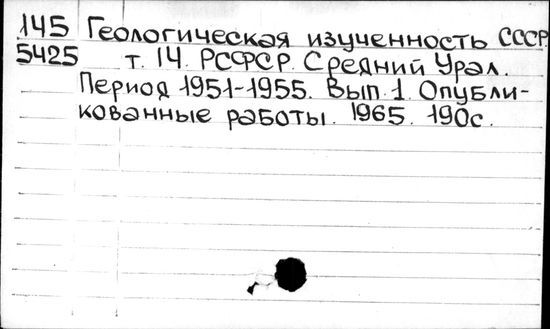 145 Геологическая изученность СССР
5425 т. 14. РСФСР. Средний Урал.
Период 1951-1955. Вып. 1. Опубли-
кованные работы. 1965. 190с.